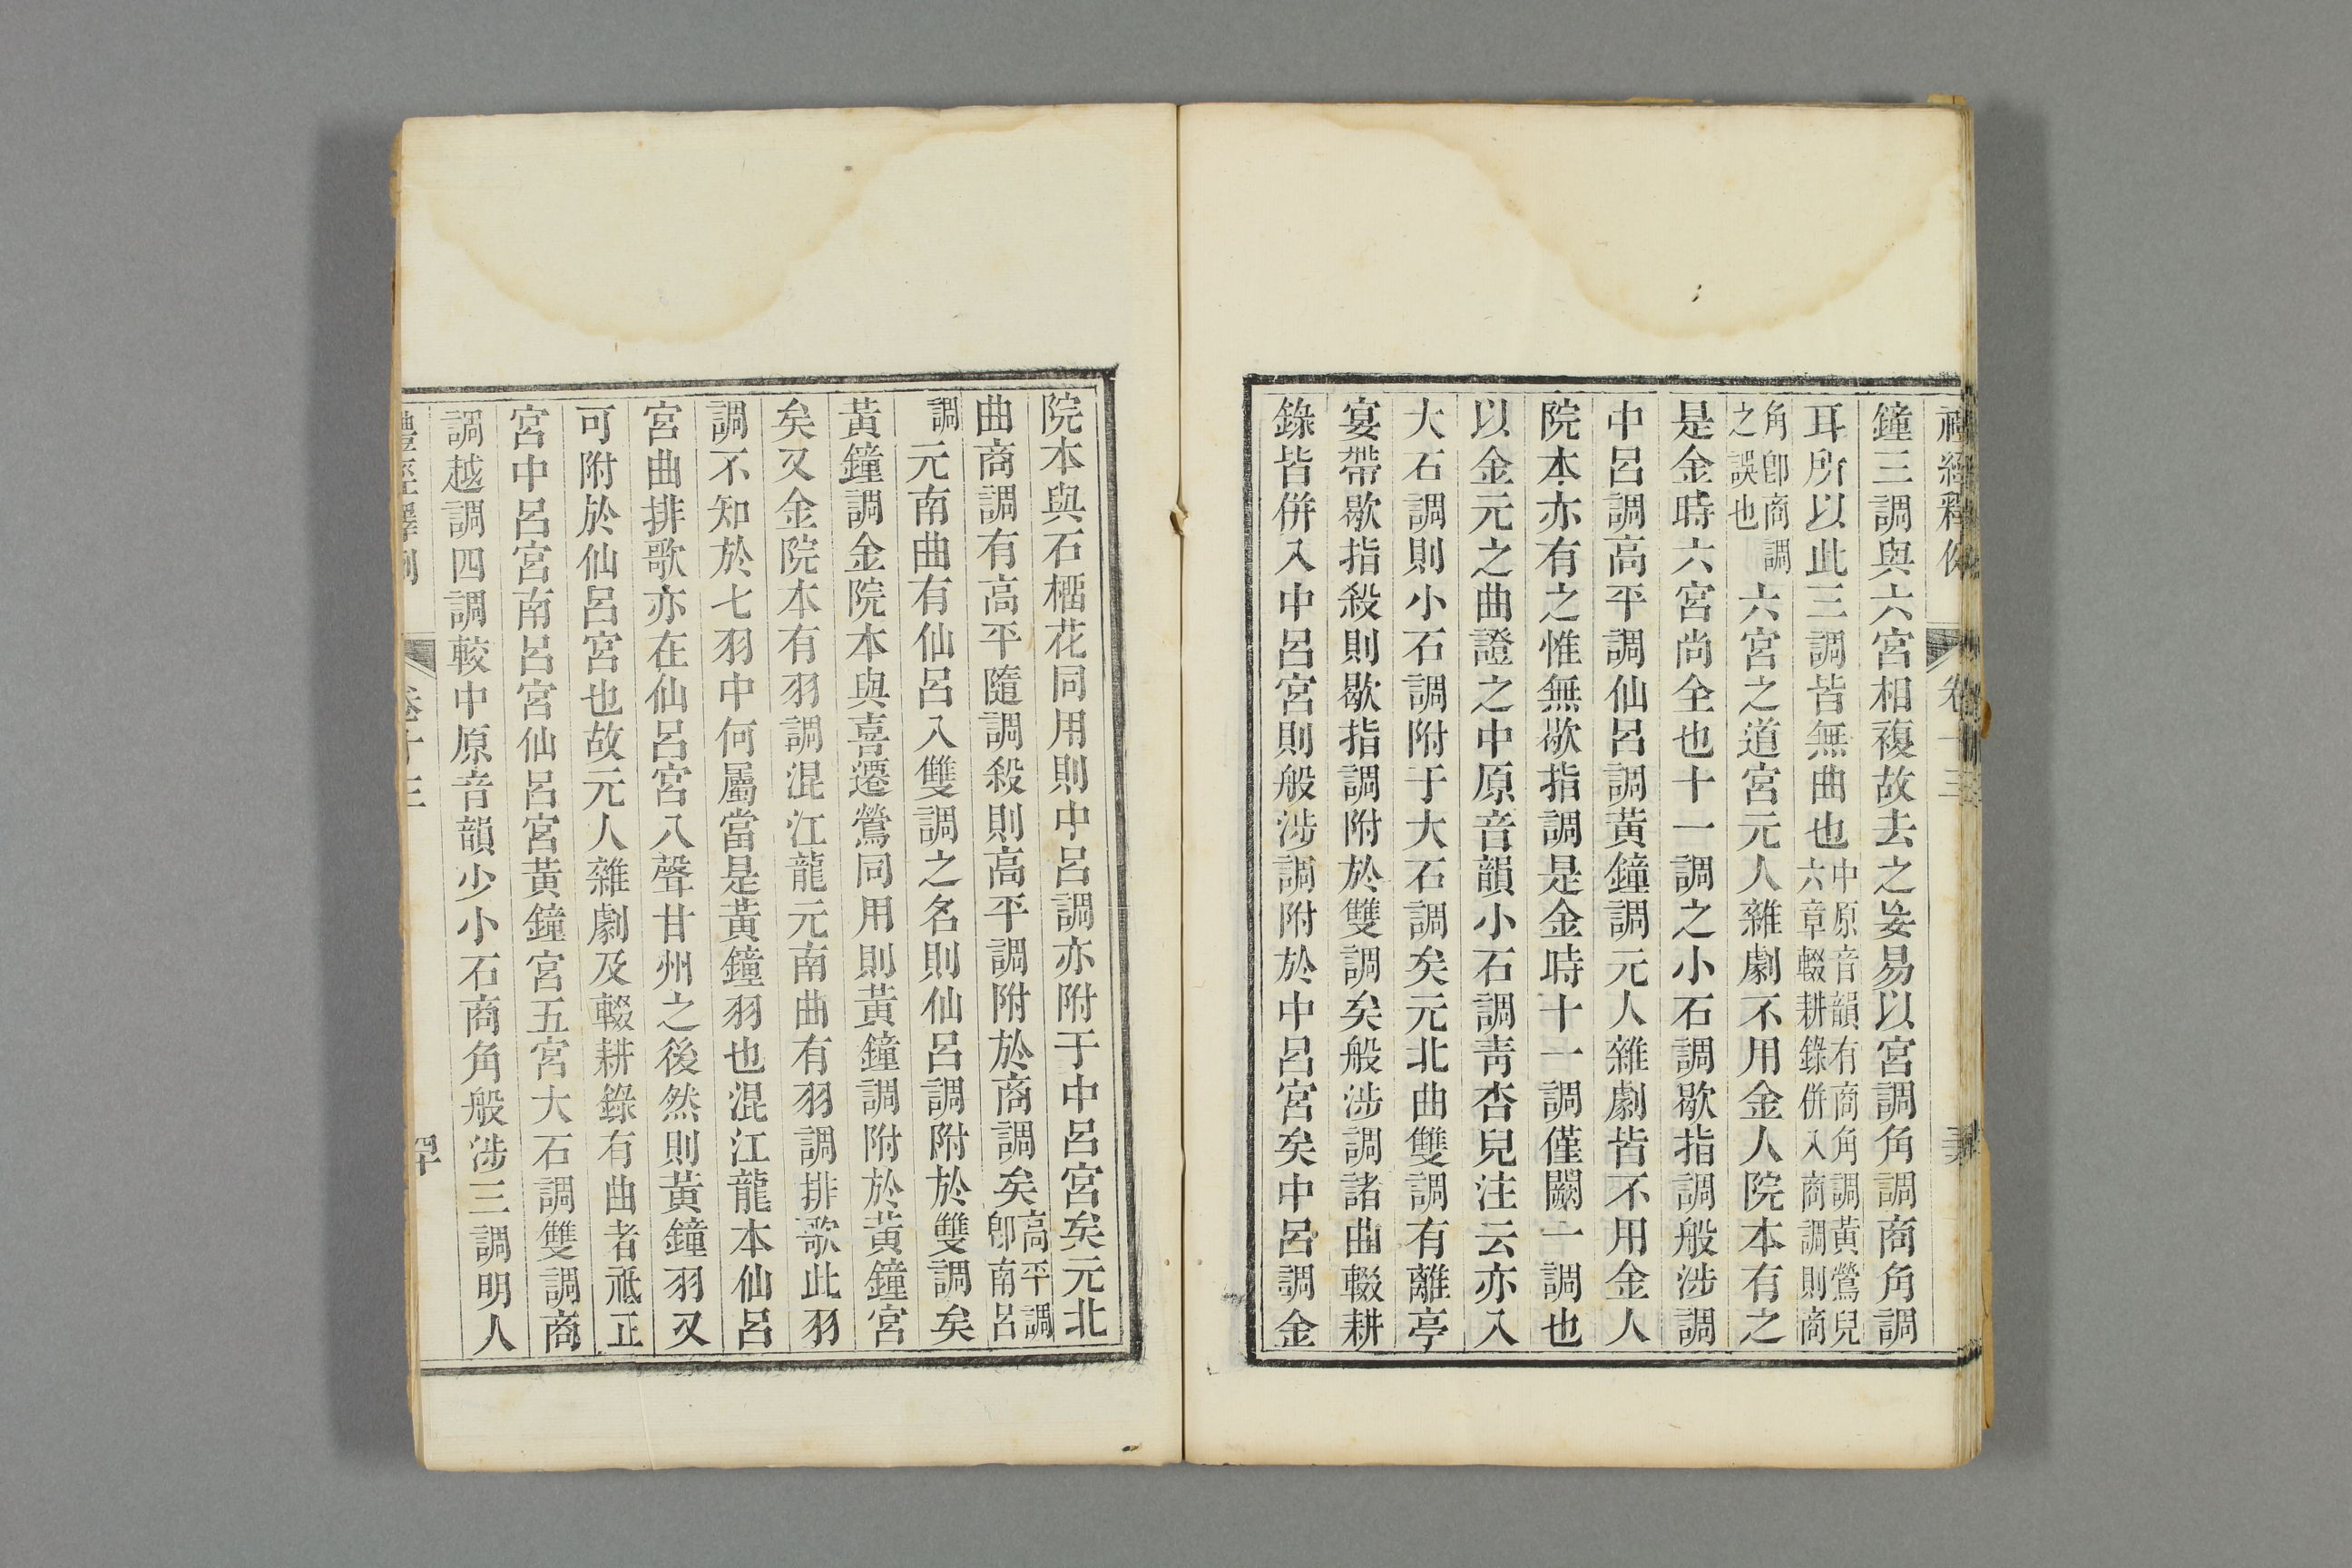 禮經釋例 卷十三
鐘三調與六宮相複故去之妄易以宮調角調商角調
耳所以此三調皆無曲也中原音韻有商角調黃鶯兒
六章輟耕錄併入商調則商
角卽商調
之誤也六宮之道宮元人雜劇不用金人院本有之
是金時六宮尚全也十一調之小石調歇指調般涉調
中呂調高平調仙呂調黃鐘調元人雜劇皆不用金人
院本亦有之惟無歇指調是金時十一調僅闕一調也
以金元之曲證之中原音韻小石調靑杏兒注云亦入
大石調則小石調附于大石調矣元北曲雙調有離亭
宴帶歇指殺則歇指調附於雙調矣般涉調諸曲輟耕
錄皆併入中呂宮則般涉調附於中呂宮矣中呂調金
院本與石榴花同用則中呂調亦附于中呂宮矣元北
曲商調有高平隨調殺則高平調附於商調矣高平調
卽南呂
調元南曲有仙呂入雙調之名則仙呂調附於雙調矣
黃鐘調金院本與喜遷鶯同用則黃鐘調附於黃鐘宮
矣又金院本有羽調混江龍元南曲有羽調排歌此羽
調不知於七羽中何屬當是黃鐘羽也混江龍本仙呂
宮曲排歌亦在仙呂宮八聲甘州之後然則黃鐘羽又
可附於仙呂宮也故元人雜劇及輟耕錄有曲者祗正
宮中呂宮南呂宮仙呂宮黃鐘宮五宮大石調雙調商
調越調四調較中原音韻少小石商角般涉三調明人
禮經釋例 卷十三